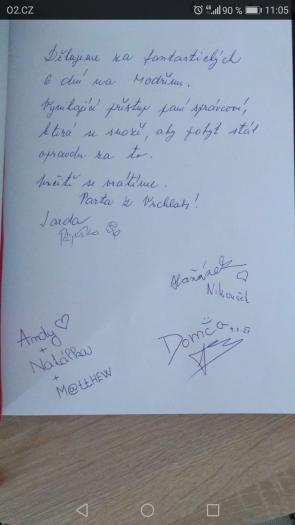 O2.CZ
90 % 11:05
Děkujeme za fantastických
6 dní na Modřínu.
Vynikající přístup paní správcové,
která se snaží, aby pobyt stál
opravdu za to.
Určitě se vrátíme.
Parta z Vrchlabí!
Jarda
Nikoušek
Andy
+
Natálka
+
M@ttHEW
Domča...